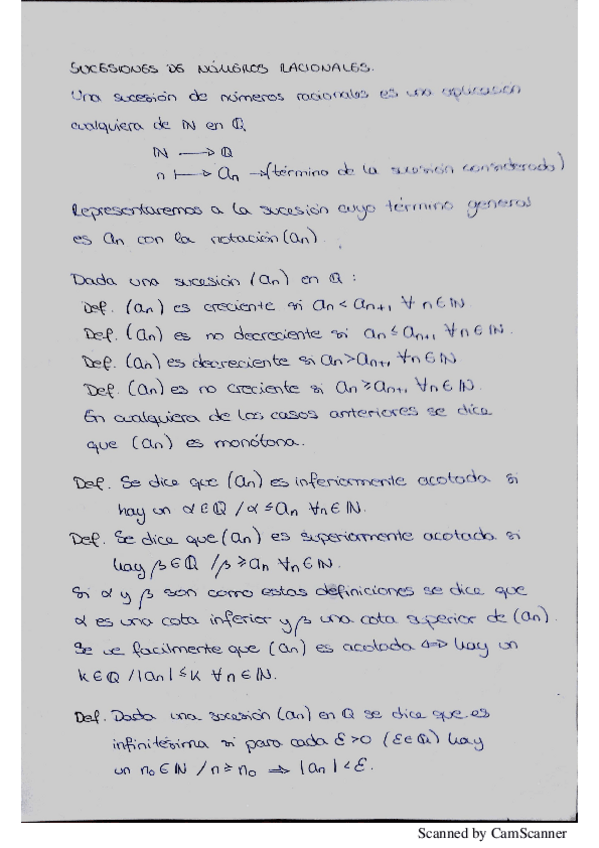 SUCESIONES DE NÚMEROS RACIONALES.
Una sucesión de números racionales es una aplicación
cualquiera de ℕ en ℚ.
ℕ ⟶ ℚ
n ⟼ an →(término de la sucesión considerado)
Representaremos a la sucesión cuyo término general
es an con la notación (an).
Dada una sucesión (an) en ℚ :
Def. (an) es creciente si an < an+1 ∀ n ∈ ℕ.
Def. (an) es no decreciente si an ≤ an+1 ∀ n ∈ ℕ.
Def. (an) es decreciente si an > an+1 ∀ n ∈ ℕ
Def. (an) es no creciente si an ≥ an+1 ∀ n ∈ ℕ.
En cualquiera de los casos anteriores se dice
que (an) es monótona.
Def. Se dice que (an) es inferiormente acotada si
hay un α ∈ ℚ / α ≤ an ∀n ∈ ℕ.
Def. Se dice que (an) es superiormente acotada si
hay β ∈ ℚ / β ≥ an ∀n ∈ ℕ.
Si α y β son como estas definiciones se dice que
α es una cota inferior y β una cota superior de (an).
Se ve facilmente que (an) es acotada ⇔ hay un
k ∈ ℚ / |an| ≤ k ∀n ∈ ℕ.
Def. Dada una sucesión (an) en ℚ se dice que es
infinitésima si para cada ε > 0 (ε ∈ ℚ) hay
un n₀ ∈ ℕ / n ≥ n₀ ⇒ |an| < ε.
Scanned by CamScanner